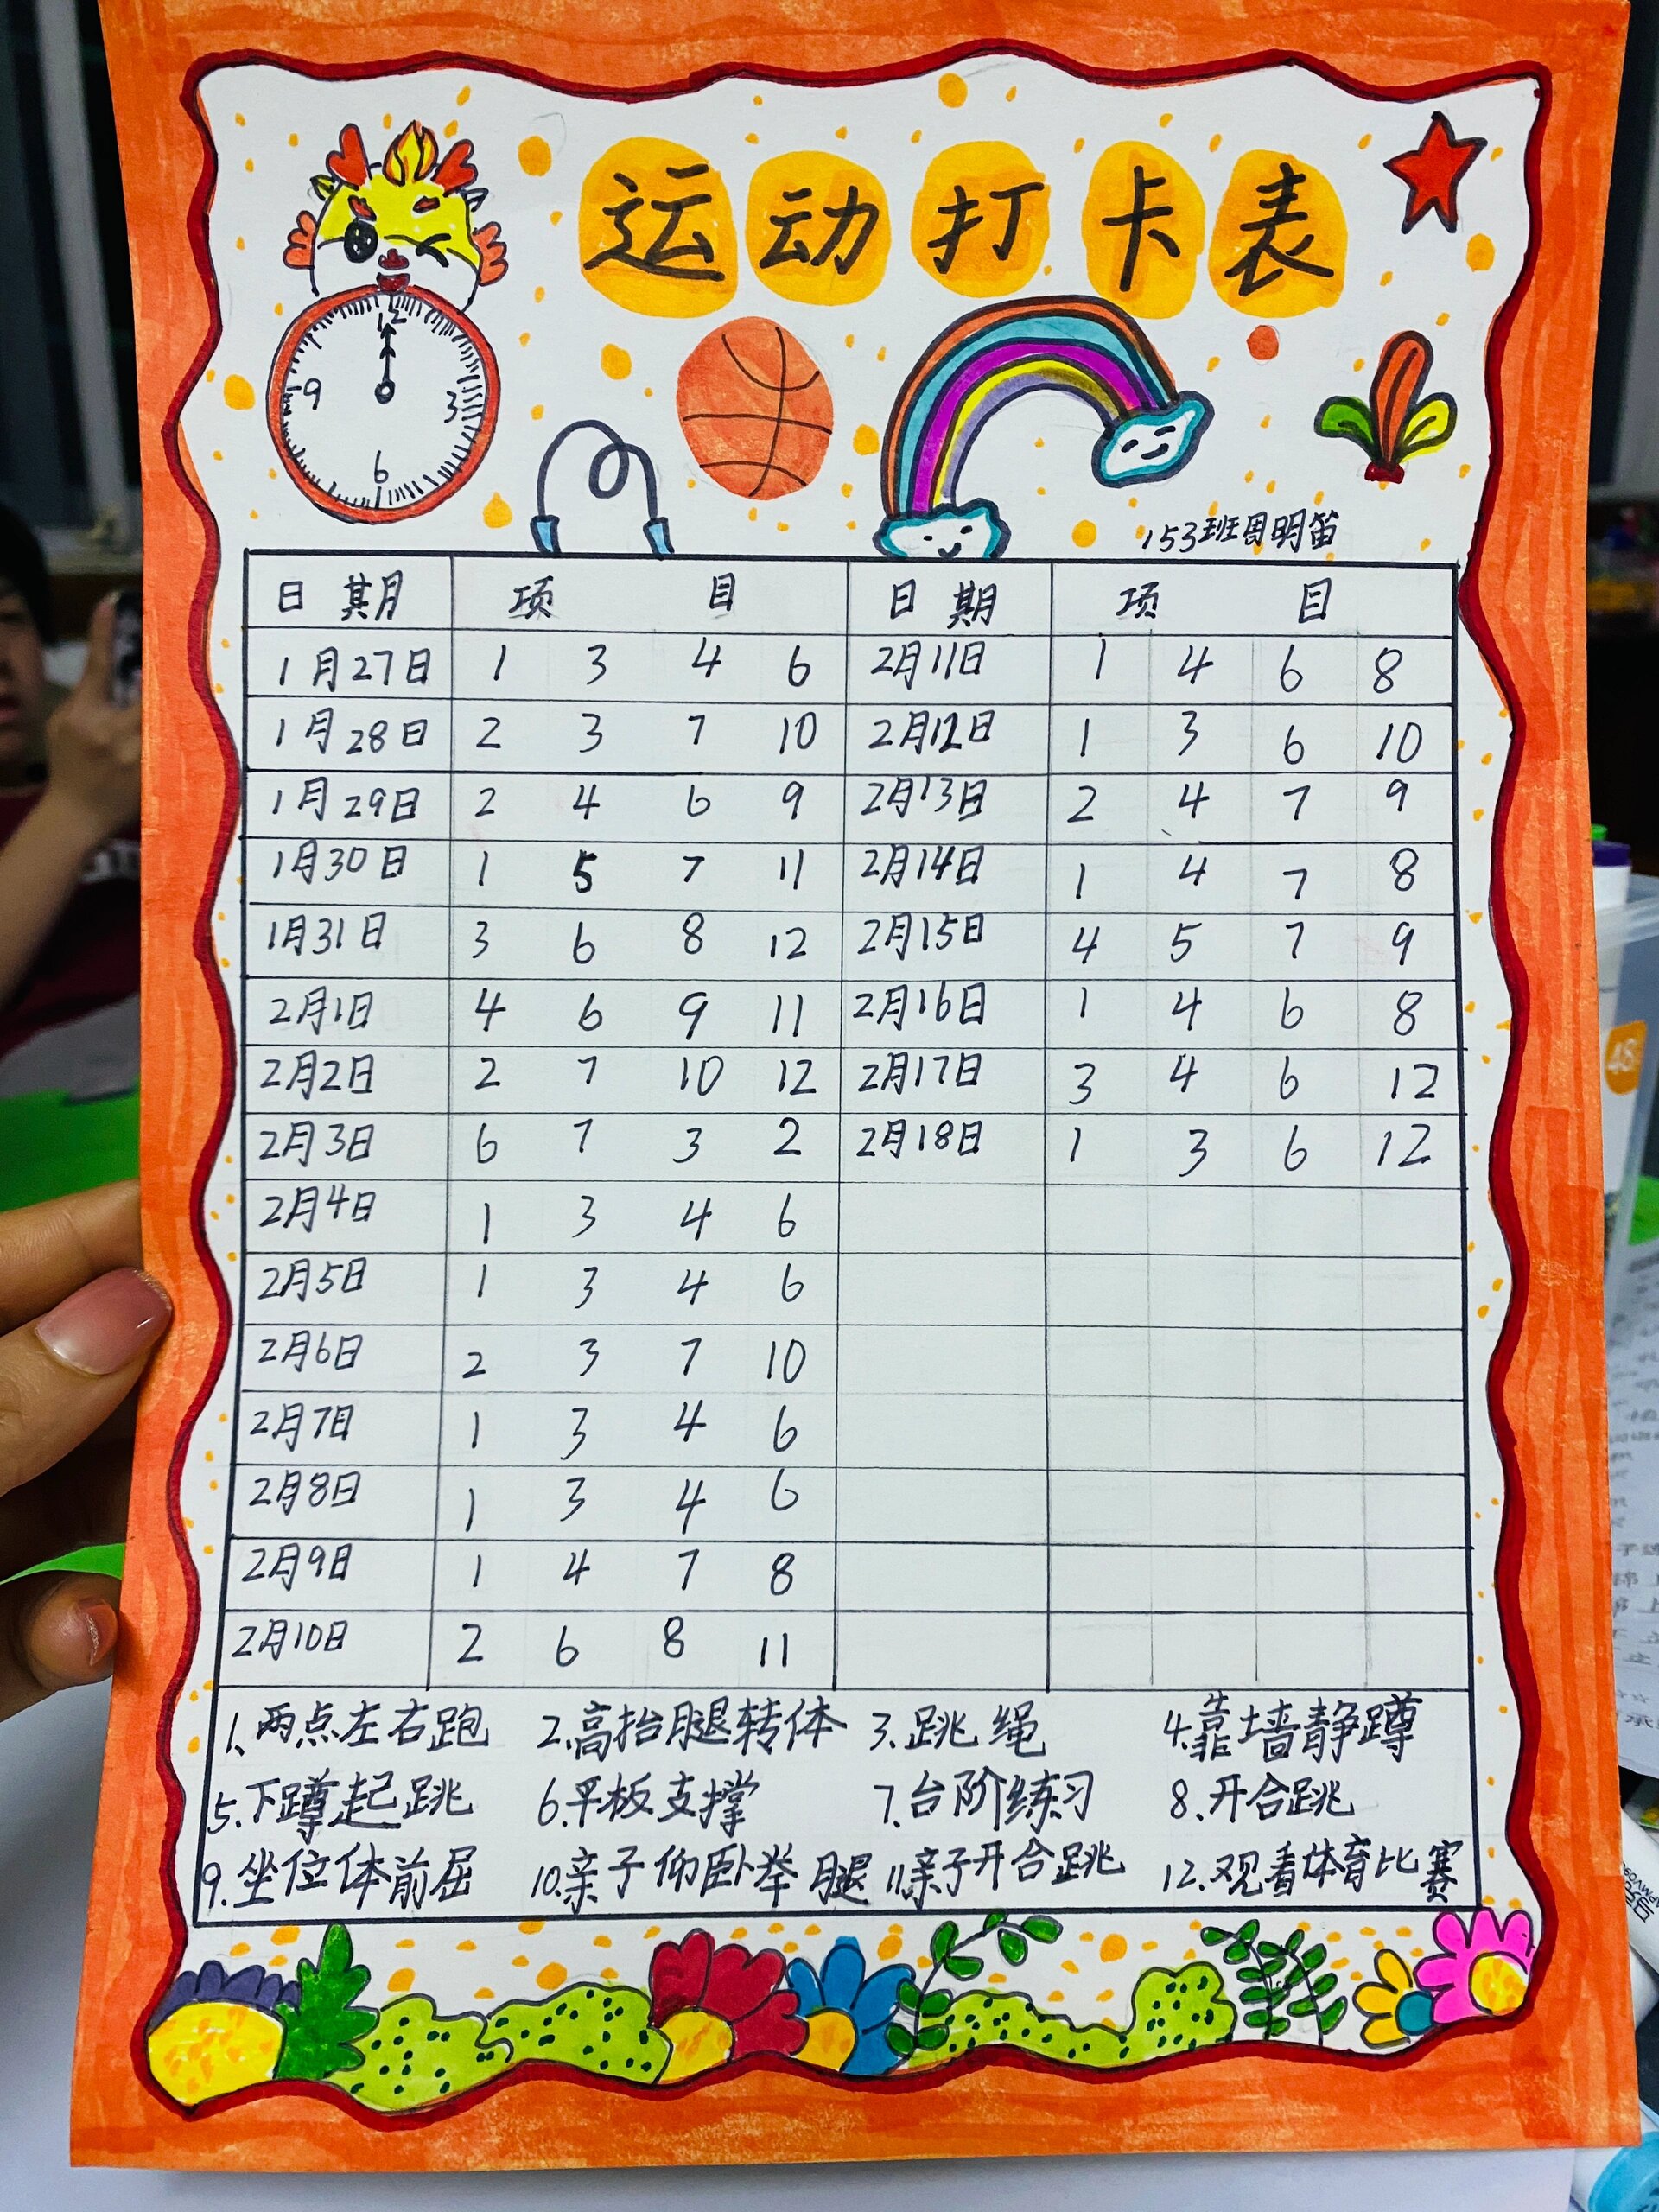 运动打卡表
12
9 3
6
153班周明笛
日期 项目 日期 项目
1月27日 1 3 4 6 2月11日 1 4 6 8
1月28日 2 3 7 10 2月12日 1 3 6 10
1月29日 2 4 6 9 2月13日 2 4 7 9
1月30日 1 5 7 11 2月14日 1 4 7 8
1月31日 3 6 8 12 2月15日 4 5 7 9
2月1日 4 6 9 11 2月16日 1 4 6 8
2月2日 2 7 10 12 2月17日 3 4 6 12
2月3日 6 7 3 2 2月18日 1 3 6 12
2月4日 1 3 4 6
2月5日 1 3 4 6
2月6日 2 3 7 10
2月7日 1 3 4 6
2月8日 1 3 4 6
2月9日 1 4 7 8
2月10日 2 6 8 11
1、两点左右跑 2、高抬腿转体 3、跳绳 4、靠墙静蹲
5、下蹲起跳 6、平板支撑 7、台阶练习 8、开合跳
9、坐位体前屈 10、亲子仰卧举腿 11、亲子开合跳 12、观看体育比赛
48